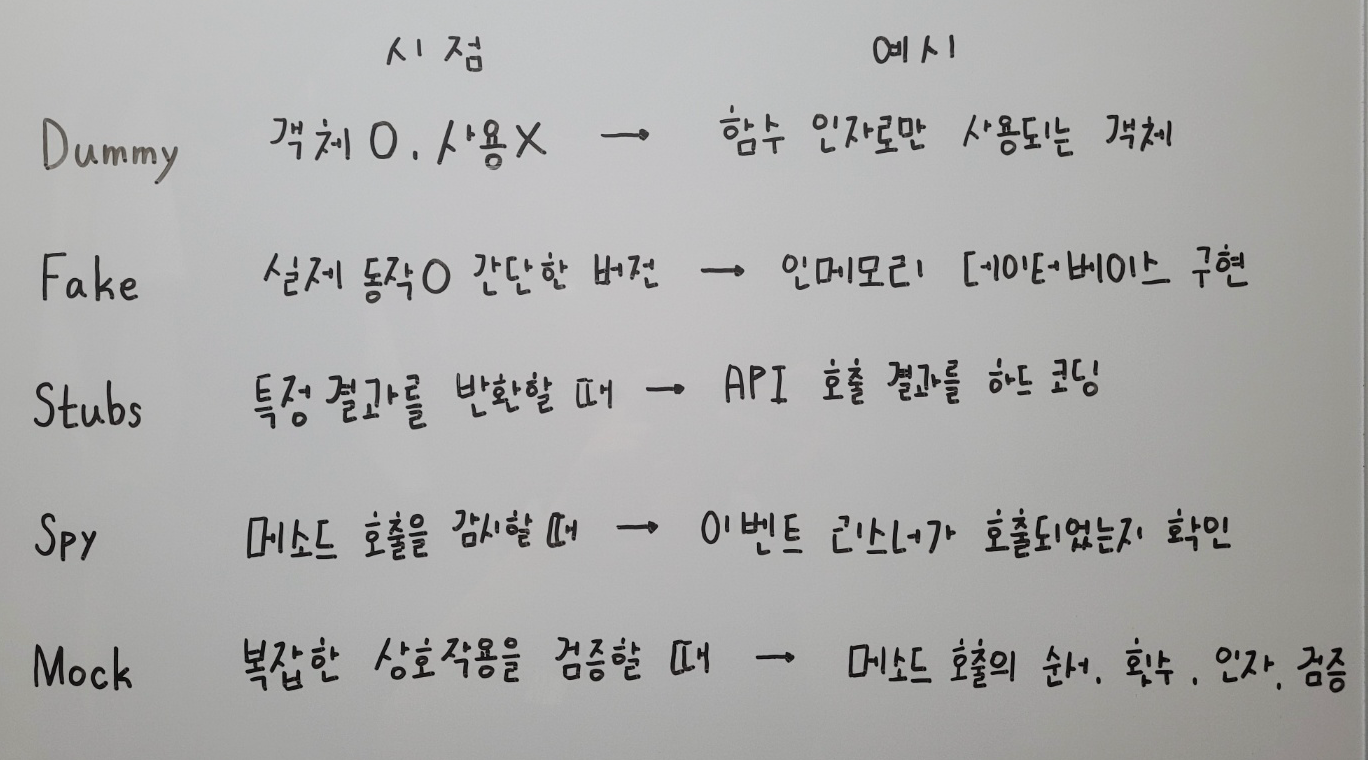 시점 예시
Dummy 객체 O, 사용 X → 함수 인자로만 사용되는 객체
Fake 실제 동작 O 간단한 버전 → 인메모리 데이터베이스 구현
Stubs 특정 결과를 반환할 때 → API 호출 결과를 하드 코딩
Spy 메소드 호출을 감시할 때 → 이벤트 리스너가 호출되었는지 확인
Mock 복잡한 상호작용을 검증할 때 → 메소드 호출의 순서, 횟수, 인자, 검증